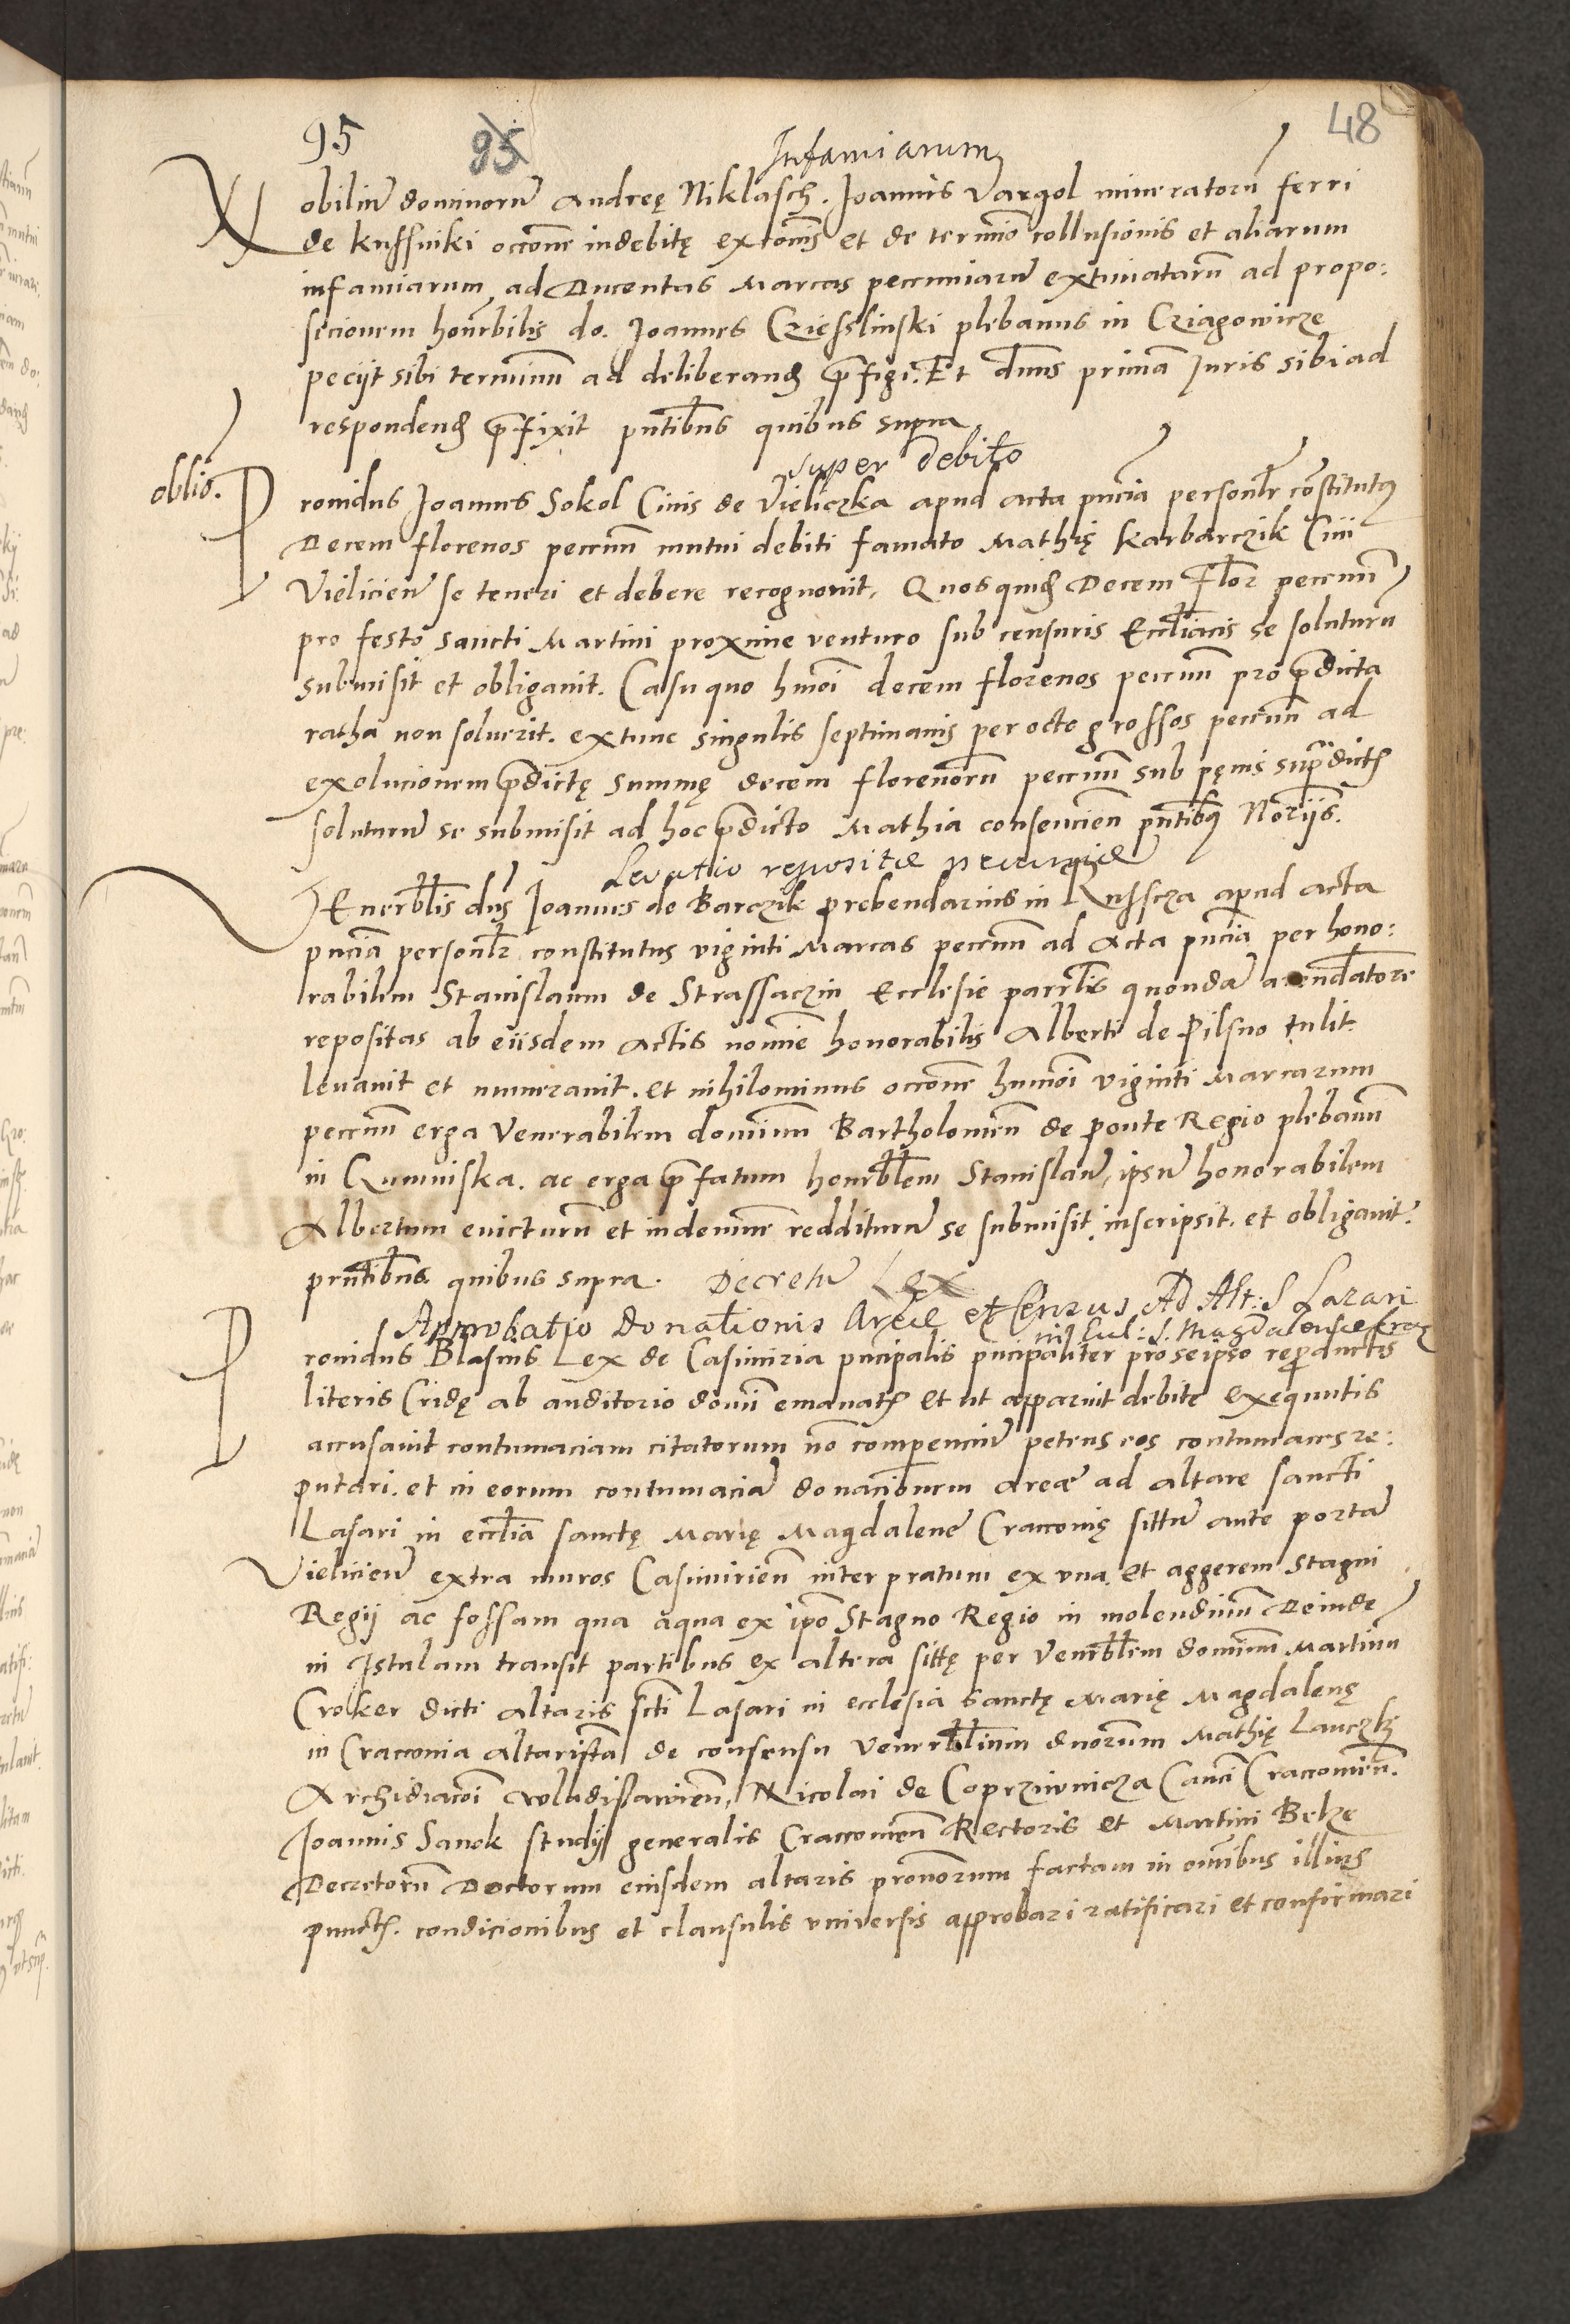 95 95 48
Infamiarum
Nobiliũ dominorũ Andreę Niklasch. Joannis Vargol mineratorũ ferri
de Kussniki occõne indebitę extõnis et de termĩo collusionis et aliarum
infamiarum, ad Ducentas Marcas pecuniarũ extimatarũ ad propo:
sicionem honrbilis do. Joannes Cziesslinski plebanus in Cziagowicze
peciit sibi terminũ ad deliberand p̃figi. Et dñus primã Juris sibi ad
respondend p̃fixit p̃ntibus quibus supra
super debito
oblio.
Prouidus Joannes Sokol Ciuis de Vieliczka apud acta pñcia personlr constitutus
Decem florenos pecuñ mutui debiti famato Mathię Karbarczik Ciui
Vielicieñ se teneri et debere recognouit, Quosquid Decem Flor pecuñ
pro festo sancti Martini proxime venturo sub censuris Eccl̃iacis se soluturũ
submisit et obligauit. Casu quo hmõi decem florenos pecuñ pro p̃dicta
ratha non soluerit. extunc singulis septimanis per octo grossos pecuñ ad
exolucionem p̃dictę summę decem florenorũ pecuñ sub pęnis supradict
soluturũ se submisit ad hoc p̃dicto Mathia consencieñ p̃ntibus Norijs.
Levatio repositæ pecuniæ
VEnerbl̃is dñs Joannes de Barczik prebendarius in Russcza apud acta
pñcia personlr constitutus viginti Marcas pecuñ ad Acta pñcia per hono:
rabilem Stanislaum de Strassaczin Ecclesie parrl̃is quondã arendatore
repositas ab eiisdem Actis nomĩe honorabilis Alberti de Pilsno tulit
leuauit et numerauit. et nihilominus occõne humõi viginti Marcarum
pecuñ erga Venerabilem dominũ Bartholomeũ de ponte Regio plebanũ
in Rumniska. ac erga p̃fatum honrblẽm Stanislaũ, ipsũ honorabilem
Albertum euicturũ et indemne redditurũ se submisit. inscripsit. et obligauit.
prñtibus quibus supra. Decretũ Lex
Approbatio Donationis Areæ et Census Ad Alt: S Lazari
in Eccl: S. Magdalenæ Crac
Prouidus Blasius Lex de Casimiria pñcipalis pñcipaliter pro seipso reproductis
literis Cridę ab auditorio domĩ emanat et ut apparuit debite exequutis
accusauit contumaciam citatorum nõ comparenciũ petens eos contumaces re:
putari. et in eorum contumaciã donacionem areæ ad altare sancti
Lasari in eccl̃ia sanctę Marię Magdalene Cracouię sittũ ante portã
Vielicieñ extra muros Casimirieñ inter pratum ex vna. et aggerem stagni
Regij ac fossam qua aqua ex ipo Stagno Regio in molendinũ Deinde
in Istulam transit partibus ex altera sittę per Venrblẽm dominũ Martinũ
Croker dicti altaris scti Lasari in ecclesia sanctę Marię Magdalenę
in Cracouia Altaristã de consensu Venerbl̃ium dnorum Mathię Lanczk
Archidiacõi Wladislauieñ, Nicolai de Coprziwnicza Canci Cracouieñ.
Joannis Sanok studij generalis Cracouieñ Rectoris et Martini Belze
Decretorũ Doctorum eiusdem altaris prouisorum factam in omĩbus illius
punct. condicionibus et clausulis vniuersis approbari ratificari et confirmari